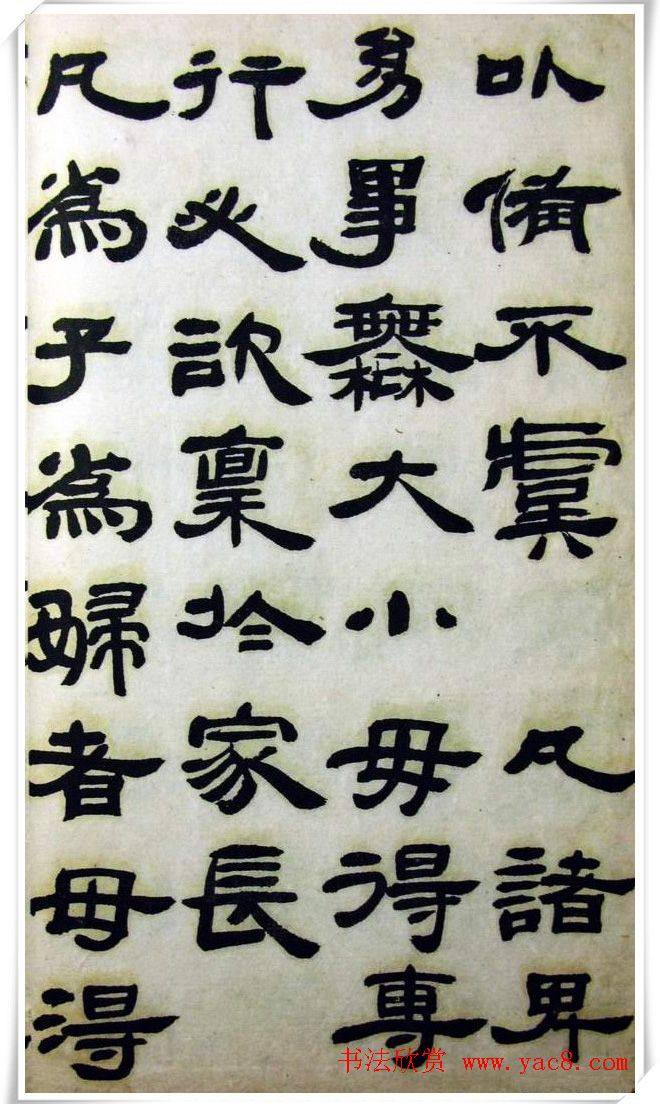 以備不虞　凡諸卑
㓜事無大小毋得專
行必欬稟於家長
凡為子為婦者毋得
书法欣赏 www.yac8.com